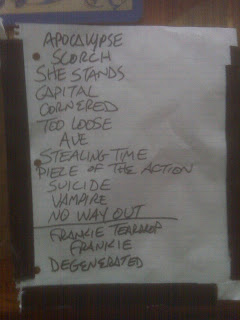 APOCALYPSE
SCORCH
SHE STANDS
CAPITAL
CORNERED
TOO LOOSE
AVE
STEALING TIME
PIEZE OF THE ACTION
SUICIDE
VAMPIRE
NO WAY OUT
FRANKIE TEARDROP
FRANKIE
DEGENERATED